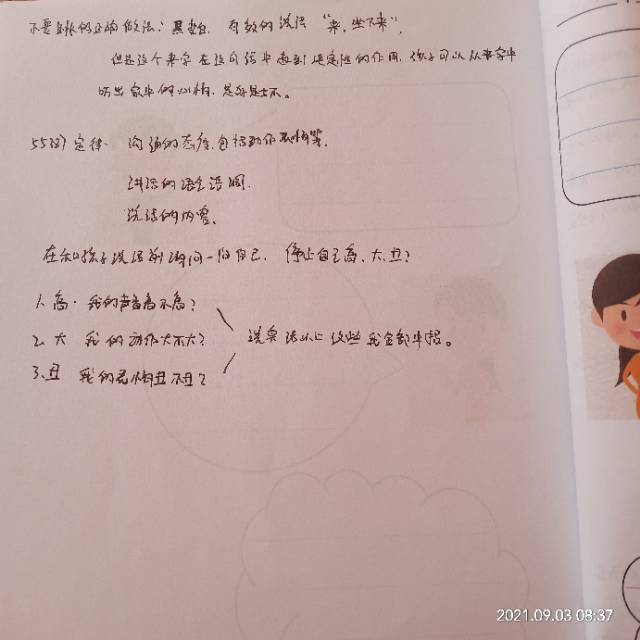 不要
的正确做法: 
有效的说法 "来,坐下来",
但是这个来字在这句话中起到
定性的作用,
孩子可以从来字中
听出家中的
,是好是坏。
55387定律:
沟通的态度,包括动作表情等,
讲话的语气语调.
说话的内容。
在和孩子说话前询问一下自己,停止自己高、大、丑?
1、高·我的声音高不高?
2、大 我的动作大不大?
3、丑 我的表情丑不丑?
以上这些我全部中招。
2021.09.03 08:37